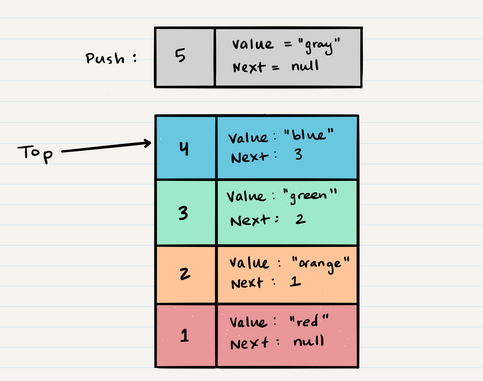 Push :
5
value = "gray"
Next = null
Top
4
Value : "blue"
Next : 3
3
Value : "green"
Next : 2
2
Value : "orange"
Next : 1
1
Value : "red"
Next : null